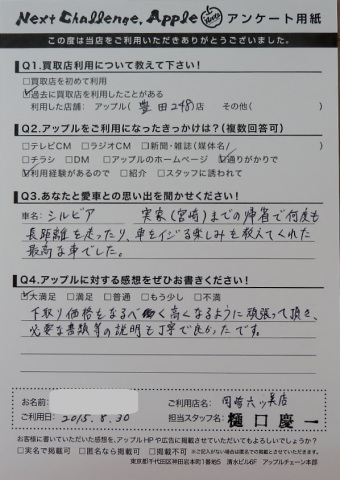 Next Challenge, Apple アンケート用紙
この度は当店をご利用いただきありがとうございました。
Q1.買取店利用について教えて下さい!
□買取店を初めて利用
☑過去に買取店を利用したことがある
利用した店舗: アップル( 豊田248 )店 その他( )
Q2.アップルをご利用になったきっかけは?(複数回答可)
□テレビCM □ラジオCM □新聞・雑誌(媒体名/ )
□チラシ □DM □アップルのホームページ ☑通りがかりで
☑利用経験があるので □紹介 □スタッフに誘われて
Q3.あなたと愛車との思い出を聞かせてください!
車名: シルビア 実家(宮崎)までの帰省で何度も
長距離を走ったり、車をイジる楽しみを教えてくれた
最高な車でした。
Q4.アップルに対する感想をぜひお書きください!
☑大満足 □満足 □普通 □もう少し □不満
下取り価格をなるべく高くなるように頑張って頂き、
必要な書類等の説明も丁寧で良かったです。
お名前: ご利用店名: 岡崎六ッ美店
ご利用日: 2015.8.30 担当スタッフ名: 樋口慶一
お客様に書いていただいた感想を、アップルHPや広告に掲載させていただいてもよろしいでしょうか?
□実名で掲載可 □匿名なら掲載可 □掲載不可 ※ご記入がない場合は匿名での掲載とさせていただきます。
東京都千代田区神田岩本町1番地5 清水ビル6F アップルチェーン本部